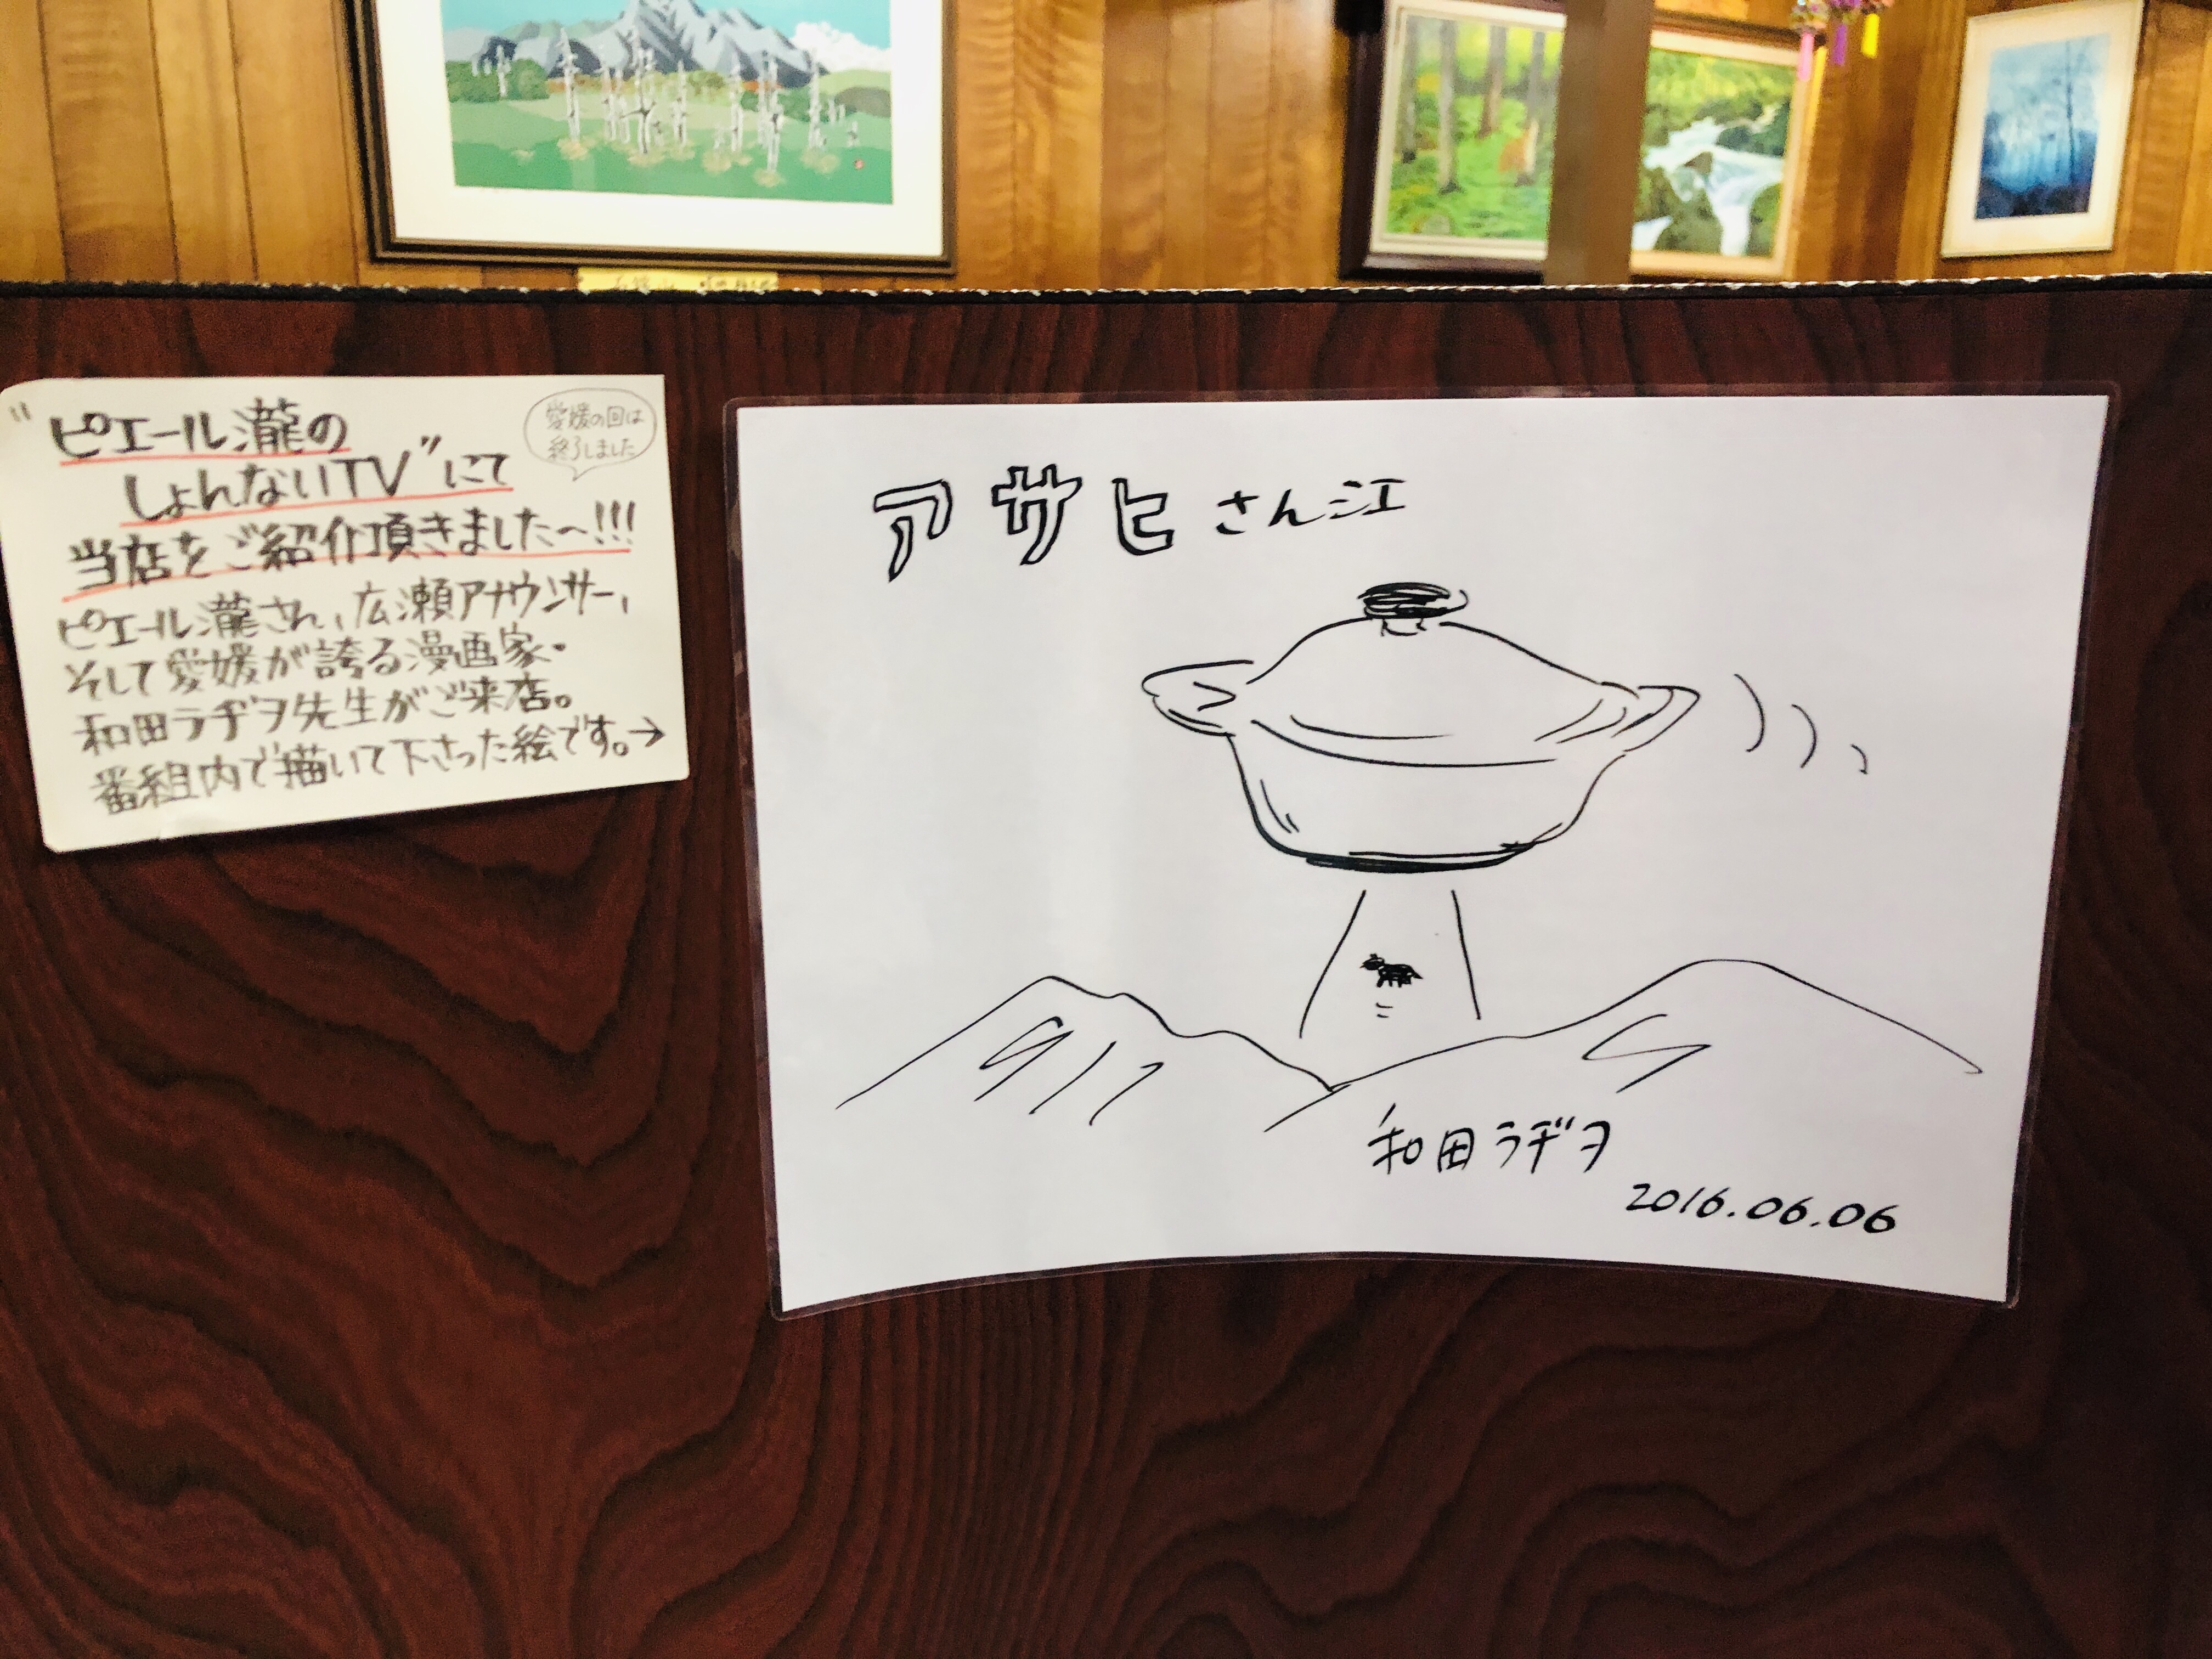 "ピエール瀧の
しょんないTV"にて
愛媛の回は
終了しました
当店をご紹介頂きました〜!!!
ピエール瀧さん、広瀬アナウンサー、
そして愛媛が誇る漫画家・
和田ラヂヲ先生がご来店。
番組内で描いて下さった絵です。→
アサヒさん江
和田ラヂヲ
2016.06.06